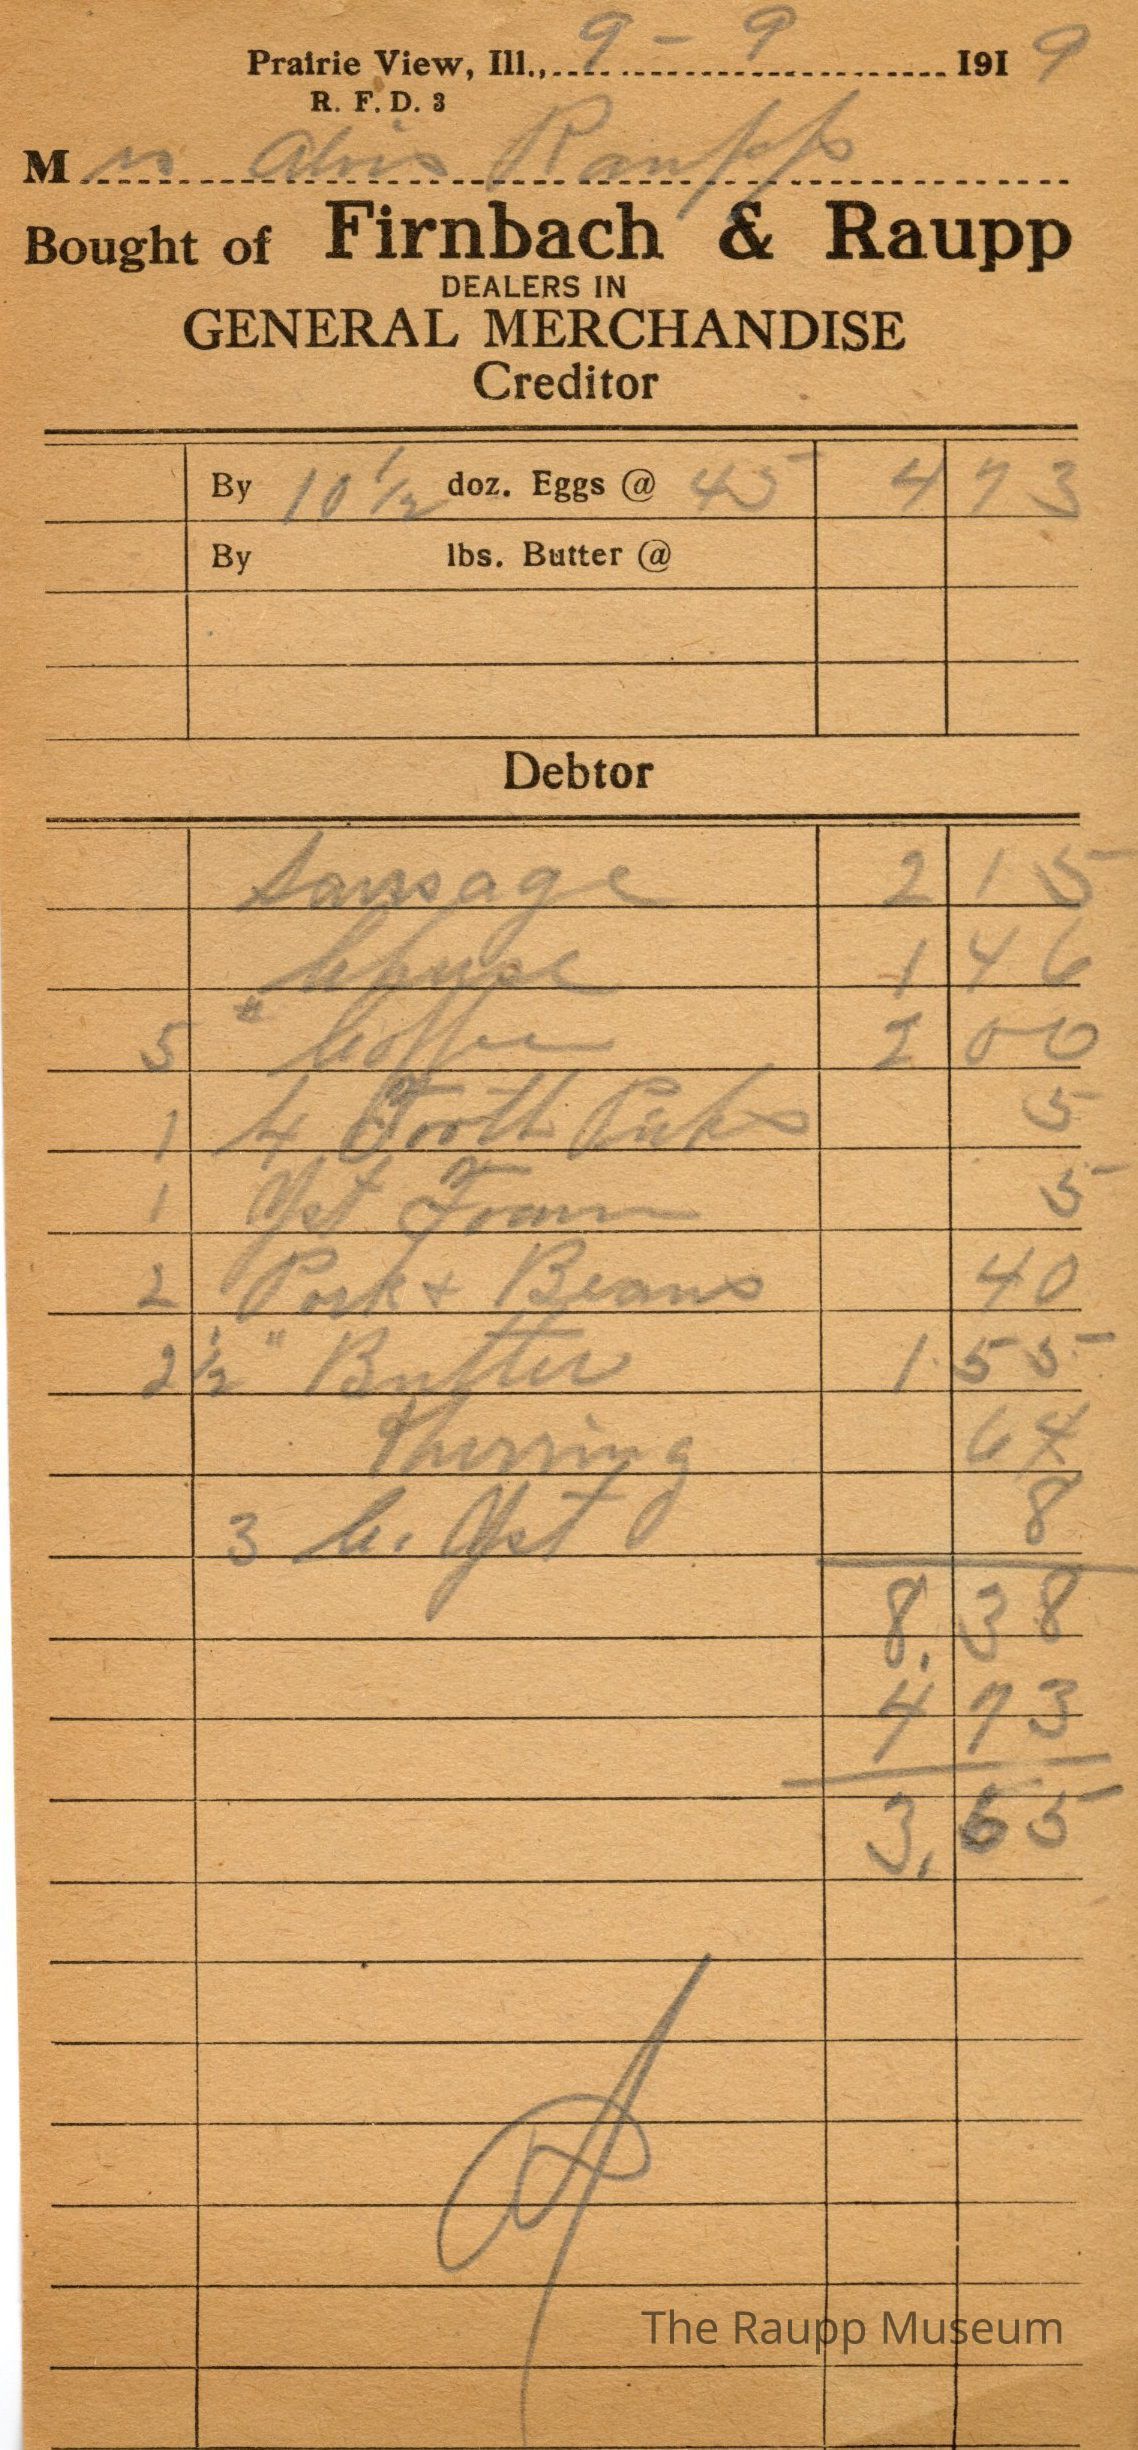 Prairie View, Ill., 9 - 9 1919
R. F. D. 3
Mrs Alois Raupp
Bought of Firnbach & Raupp
DEALERS IN
GENERAL MERCHANDISE
Creditor
By 10 1/2 doz. Eggs @ 45 4 73
By lbs. Butter @
Debtor
Sausage 2 15
Cheese 1 46
5 " Coffee 2 00
1 Tooth Picks 5
1 Yst Foam 5
2 Pork + Beans 40
2 1/2 " Butter 1 55
Herring 64
3 C. Yst 8
8.38
4 73
3.65
The Raupp Museum